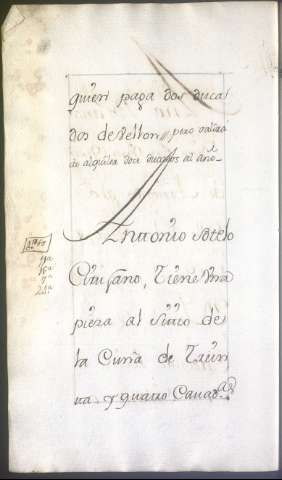 quien paga dos duca
dos de vellon, pero valdra
de alquiler doce ducados al año
Antonio Sotelo
Cirujano, tiene una
pieza al sitio de
la Cunia de trein
ta y quatro Cavad.as